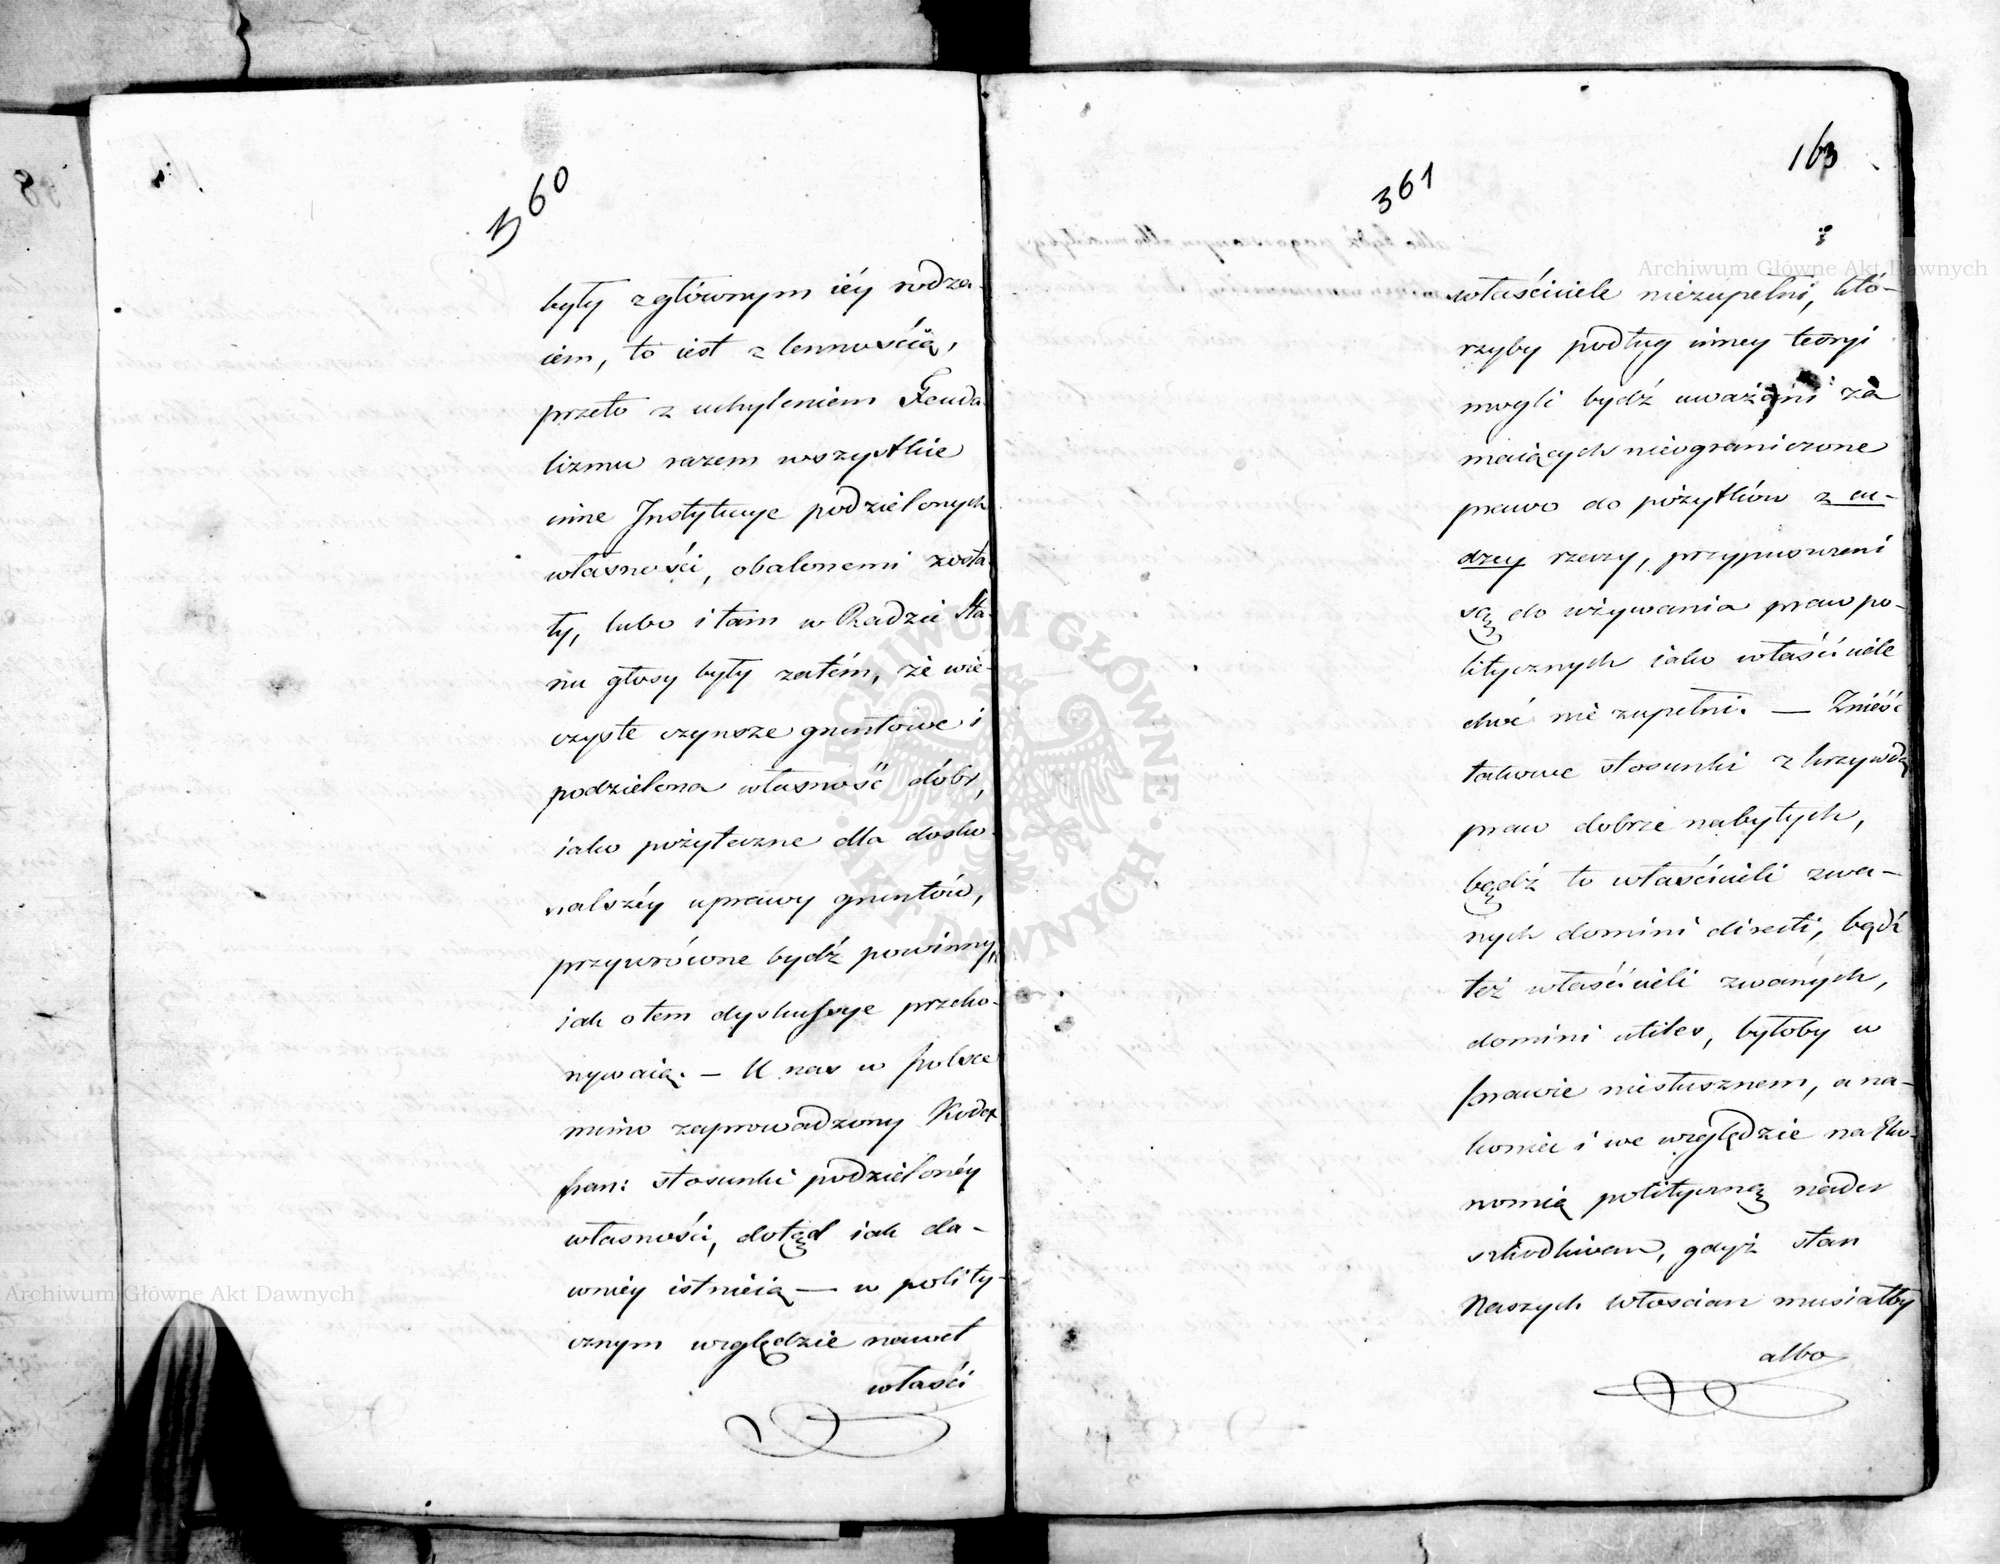 360
były z głównym iéy rodza-
iem, to iest z lennością,
przeto z uchyleniem Feuda
lizmu razem wszystkie
inne Instytucye podzielonych
własności, obalonemi zosta
ły, lubo i tam w Radzie Sta-
nu głosy były zatém, że wie-
czyste czynsze gruntowe i
podzielona własność dóbr,
iako pożyteczne dla dosko-
nalszéy uprawy gruntów,
przywrócone bydź powinny,
iak o tem dyskussye przeko-
nywaią. — U nas w Polsce
mimo zaprowadzony Kodex
fran: stosunki podzielonéy
własności, dotąd iak da-
wniey istnieią — w polity-
cznym względzie nawet
właści
361
163
właściciele niezupełni, któ-
rzyby podług inney teoryi
mogli bydź uważani za
maiących nieograniczone
prawo do pożytków z cu-
dzey rzeczy, przypuszczeni
są do używania praw po-
litycznych iako właściciele
choć nie zupełni. — Znieść
takowe stosunki z krzywdą
praw dobrze nabytych,
bądź to właścicieli zwa-
nych domini directi, bądź
też właścicieli zwanych,
domini utiles, byłoby w
prawie niesłusznem, a na-
koniec i we względzie na Eko-
nomią polityczną nader
szkodliwem, gdyż stan
Naszych włościan musiałby
albo
Archiwum Główne Akt Dawnych
Archiwum Główne Akt Dawnych
ARCHIWUM GŁÓWNE
AKT DAWNYCH